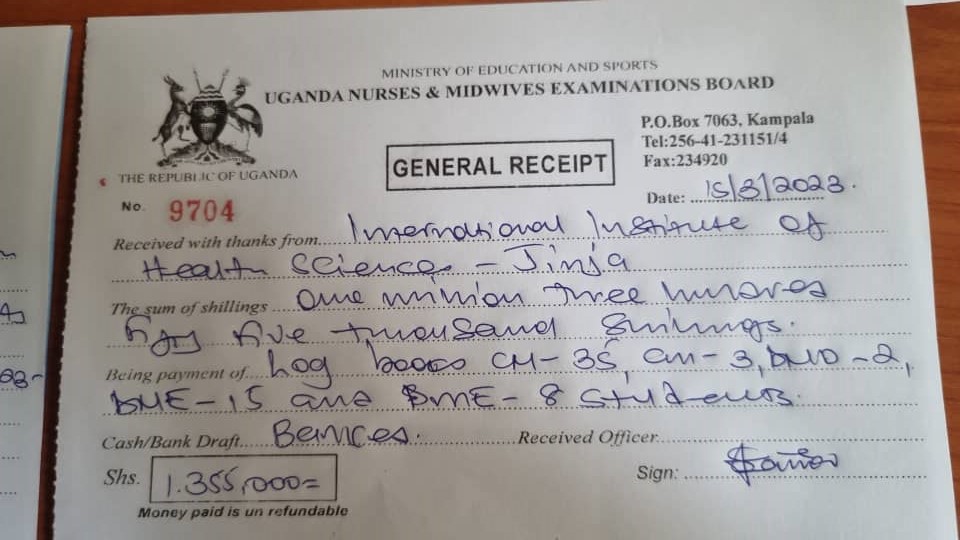 MINISTRY OF EDUCATION AND SPORTS
UGANDA NURSES & MIDWIVES EXAMINATIONS BOARD
P.O.Box 7063, Kampala
Tel:256-41-231151/4
Fax:234920
GENERAL RECEIPT
THE REPUBLIC OF UGANDA
Date: 15/8/2023.
No. 9704
Received with thanks from International Institute of
Health Sciences - Jinja
The sum of shillings One million three hundred
fifty five thousand Shillings.
Being payment of Log books CM-35, CN-3, -2,
DME-15 and BME-8 Students.
Cash/Bank Draft Received Officer
Shs. 1.355,000= Sign:
Money paid is un refundable